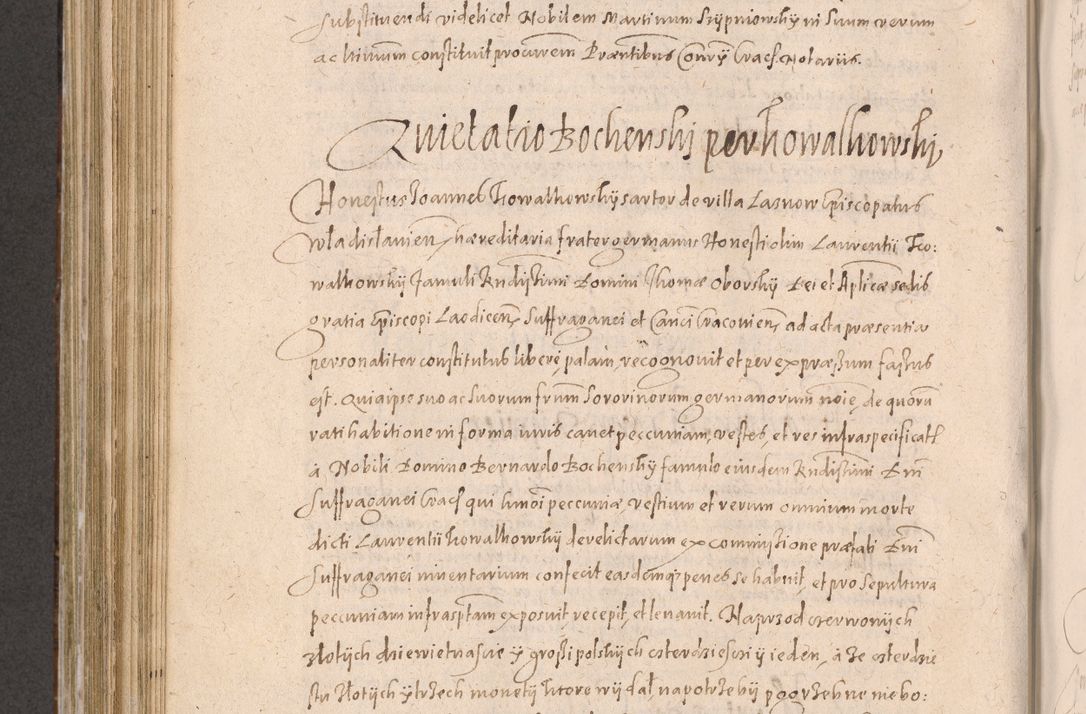 substituendi videlicet Nobilem Martinum Szÿpniowskÿ in suum verum
ac ltimum constituit procurem Præntibus Conrÿ Cracs. Notariis.
Quietatio Bochenski per Kowalkowski,
Honestus Joannes Kowalkowskÿ sartor de villa Laznow Episcopatus
Wladislavien, hæreditaria frater germanus Honesti olim Laurentii Ko:
walkowskÿ famuli Rndissimi Domini Thomæ Oborskÿ Dei et Aplicæ sedis
gratia Episcopi Laodicen, Suffraganei et Canci Cracovien, ad acta præsentia
personaliter constitutus libere, palam, recognovit et per expræssum fassus
est. Quia ipse suo ac suorum frum sororinorum germanorum noie, de quoru
ratihabitione in forma iuris cavet peccuniam, vestes, et res infraspecificatt
à Nobili Domino Bernardo Bochenskÿ famulo eiusdem Rndissimi Dni
Suffraganei Cracs qui hmoi peccuniæ, vestium et rerum omnium morte
dicti Laurentii Kowalkowskÿ derelictarum ex commissione præfati Dni
Suffraganei inventarium confecit easdemq; penes se habuit, et pro sepultura
peccuniam infrasptam exposuit, recepit, et levavit. Naprzod czerwonÿch
złotÿch dziewietnascie ÿ grossi polskÿch czterdziesci ÿ ieden, à że czterdzie
stu złotÿch ÿ trzech monetÿ ktore wÿdał na potrzebÿ pogrzebne niebo: